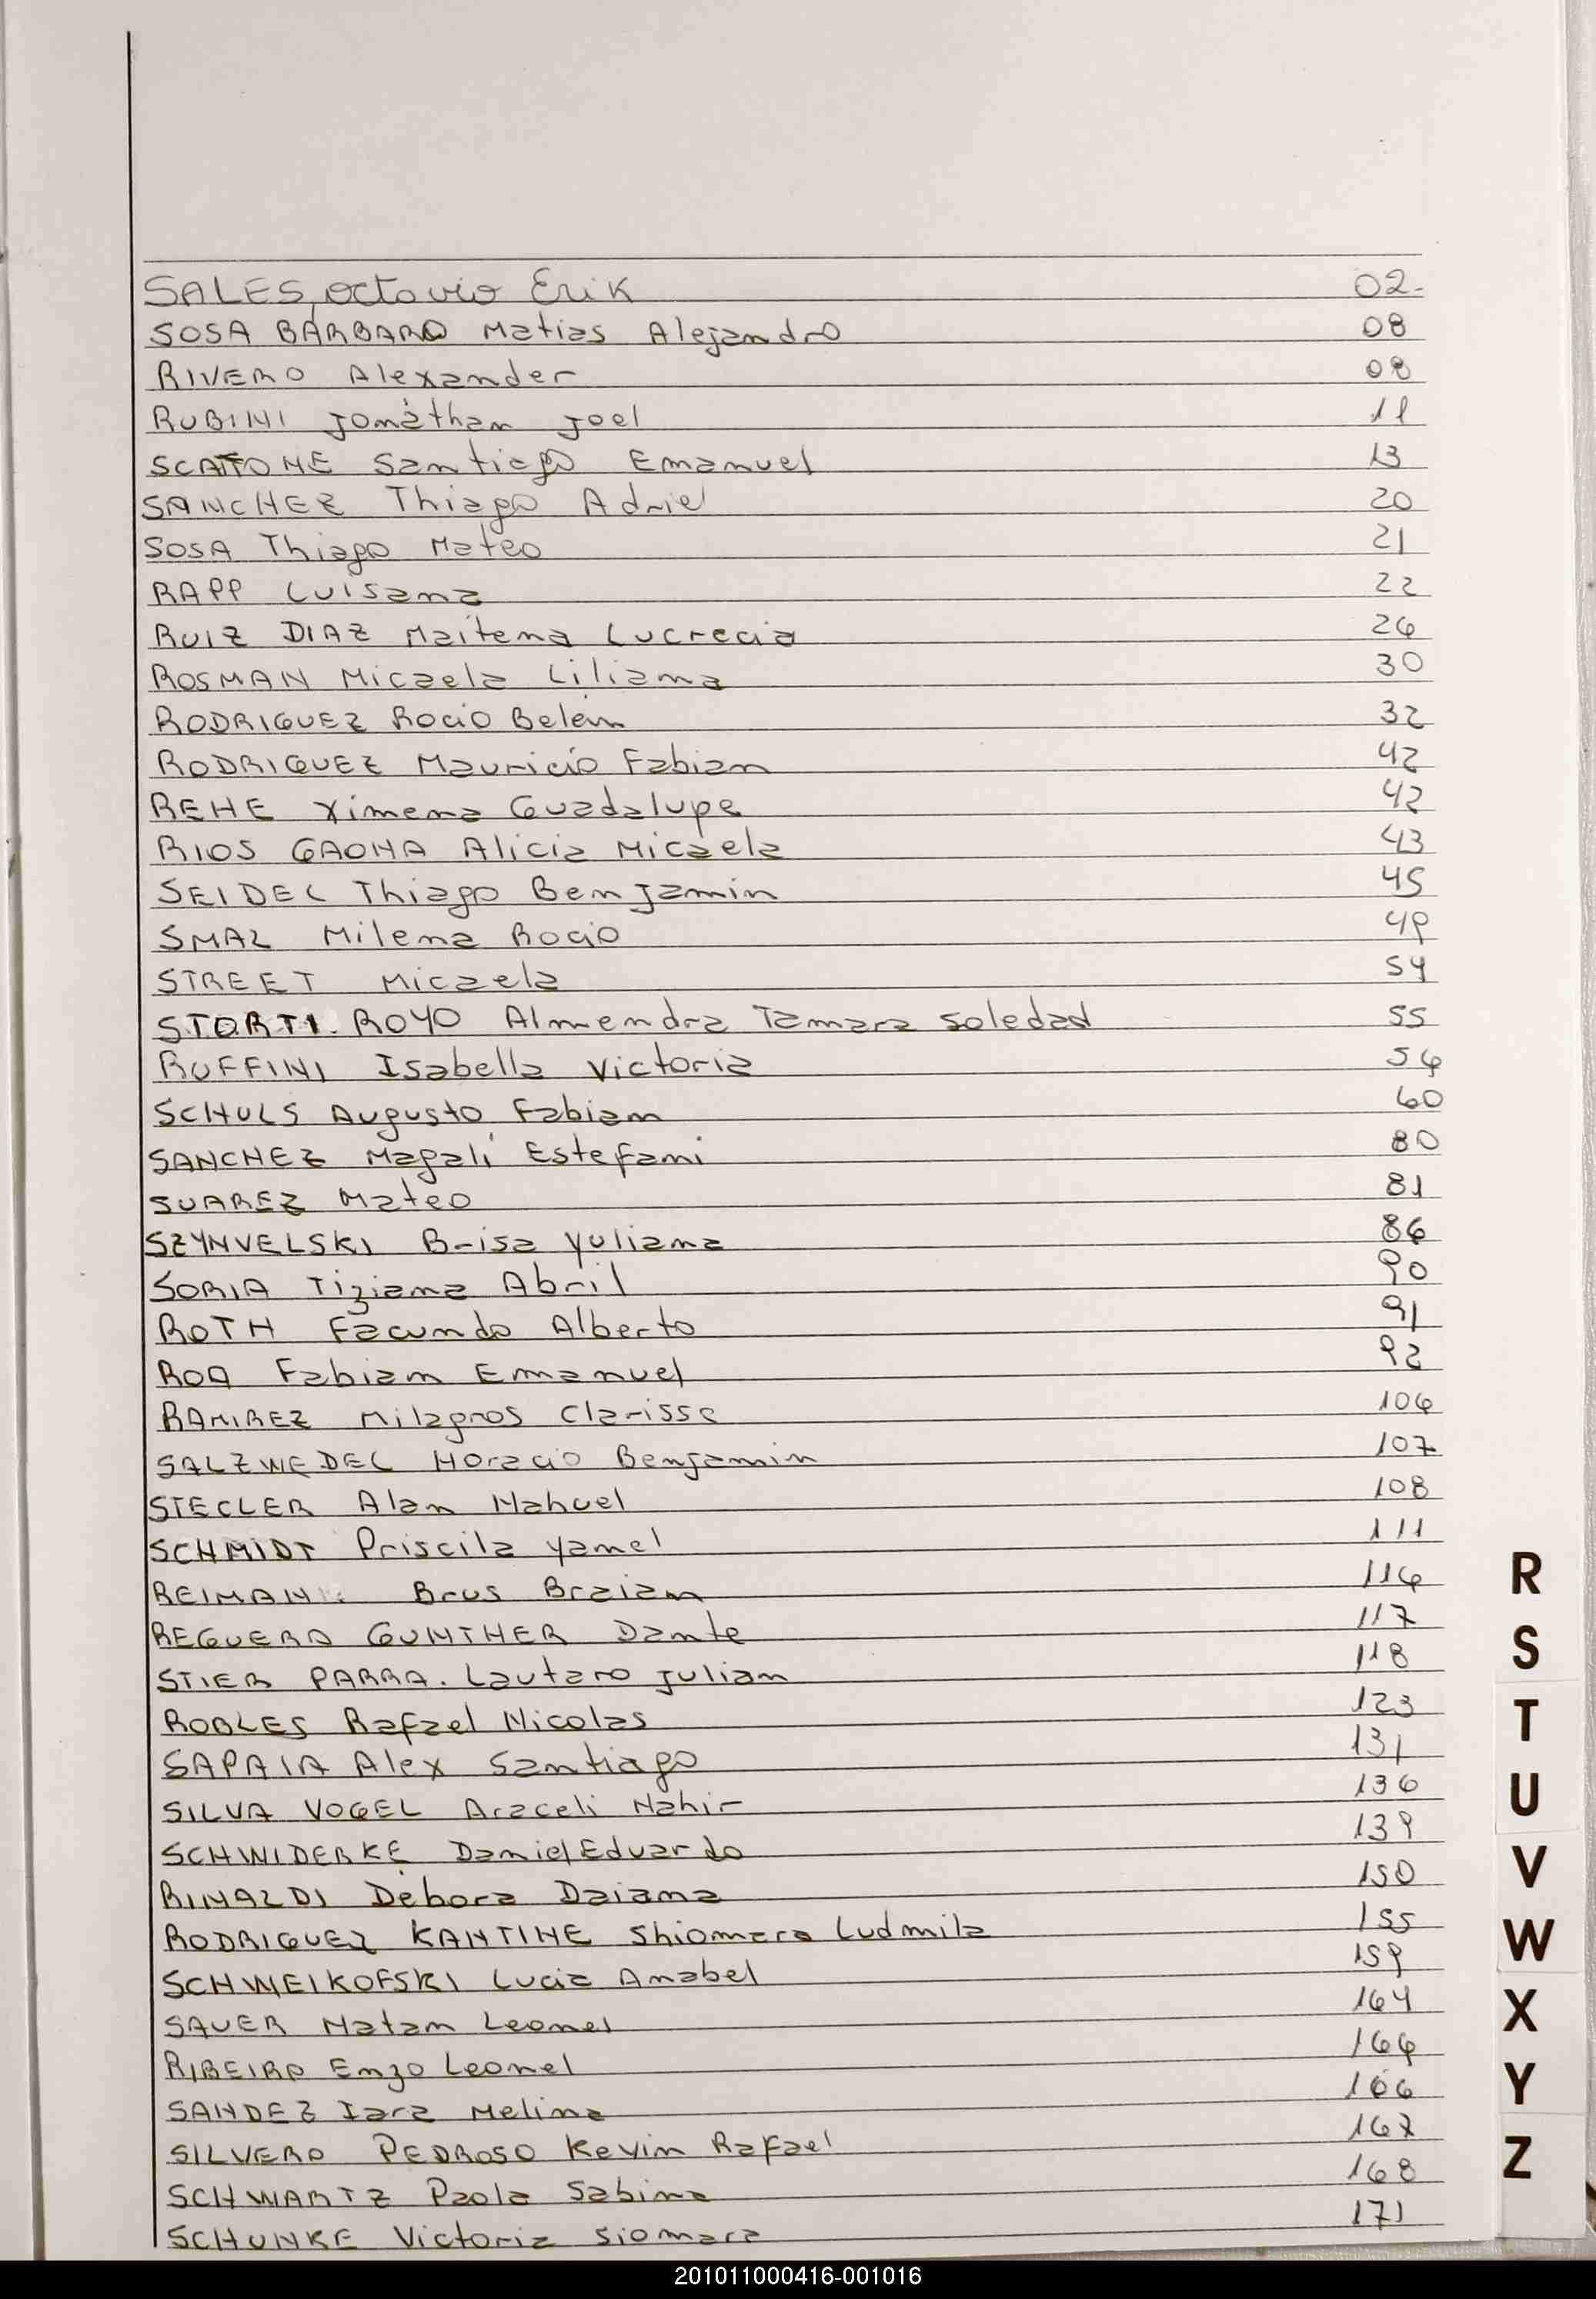 SALES, Octavio Erik 02.
SOSA BÁRBARO Matias Alejandro 08
RIVERO Alexander 08
RUBINI Jonáthan Joel 11
SCATTONE Santiago Emanuel 13
SANCHEZ Thiago Adriel 20
SOSA Thiago Mateo 21
RAPP Luisana 22
RUIZ DIAZ Maitena Lucrecia 26
ROSMAN Micaela Liliana 30
RODRIGUEZ Rocio Belén 32
RODRIGUEZ Mauricio Fabian 42
REHE Ximena Guadalupe 42
RIOS GAONA Alicia Micaela 43
SEIDEL Thiago Benjamin 45
SMAL Milena Rocio 49
STREET Micaela 54
STORTI. ROYO Almendra Tamara Soledad 55
RUFFINI Isabella Victoria 56
SCHULS Augusto Fabian 60
SANCHEZ Magalí Estefani 80
SUAREZ Mateo 81
SZYNVELSKI Brisa Yuliana 86
SORIA Tiziana Abril 90
ROTH Facundo Alberto 91
ROA Fabian Emanuel 92
RAMIREZ Milagros Clarisse 106
SALZWEDEL Horacio Benjamin 107
STECLER Alan Nahuel 108
SCHMIDT Priscila Yamel 111
REIMAN Brus Braian 116
REGUERA GUNTHER Dante 117
STIER PARRA. Lautaro Julian 118
ROBLES Rafael Nicolas 123
SAPAIA Alex Santiago 131
SILVA VOGEL Araceli Nahir 136
SCHWIDERKE Daniel Eduardo 139
RINALDI Débora Daiana 150
RODRIGUEZ KANTINE Shiomara Ludmila 155
SCHWEIKOFSKI Lucia Anabel 159
SAUER Natan Leonel 164
RIBEIRO Enzo Leonel 166
SANDEZ Iara Melina 166
SILVERO PEDROSO Kevin Rafael 167
SCHWARTZ Paola Sabina 168
SCHUNKE Victoria Siomara 171
R
S
T
U
V
W
X
Y
Z
201011000416-001016